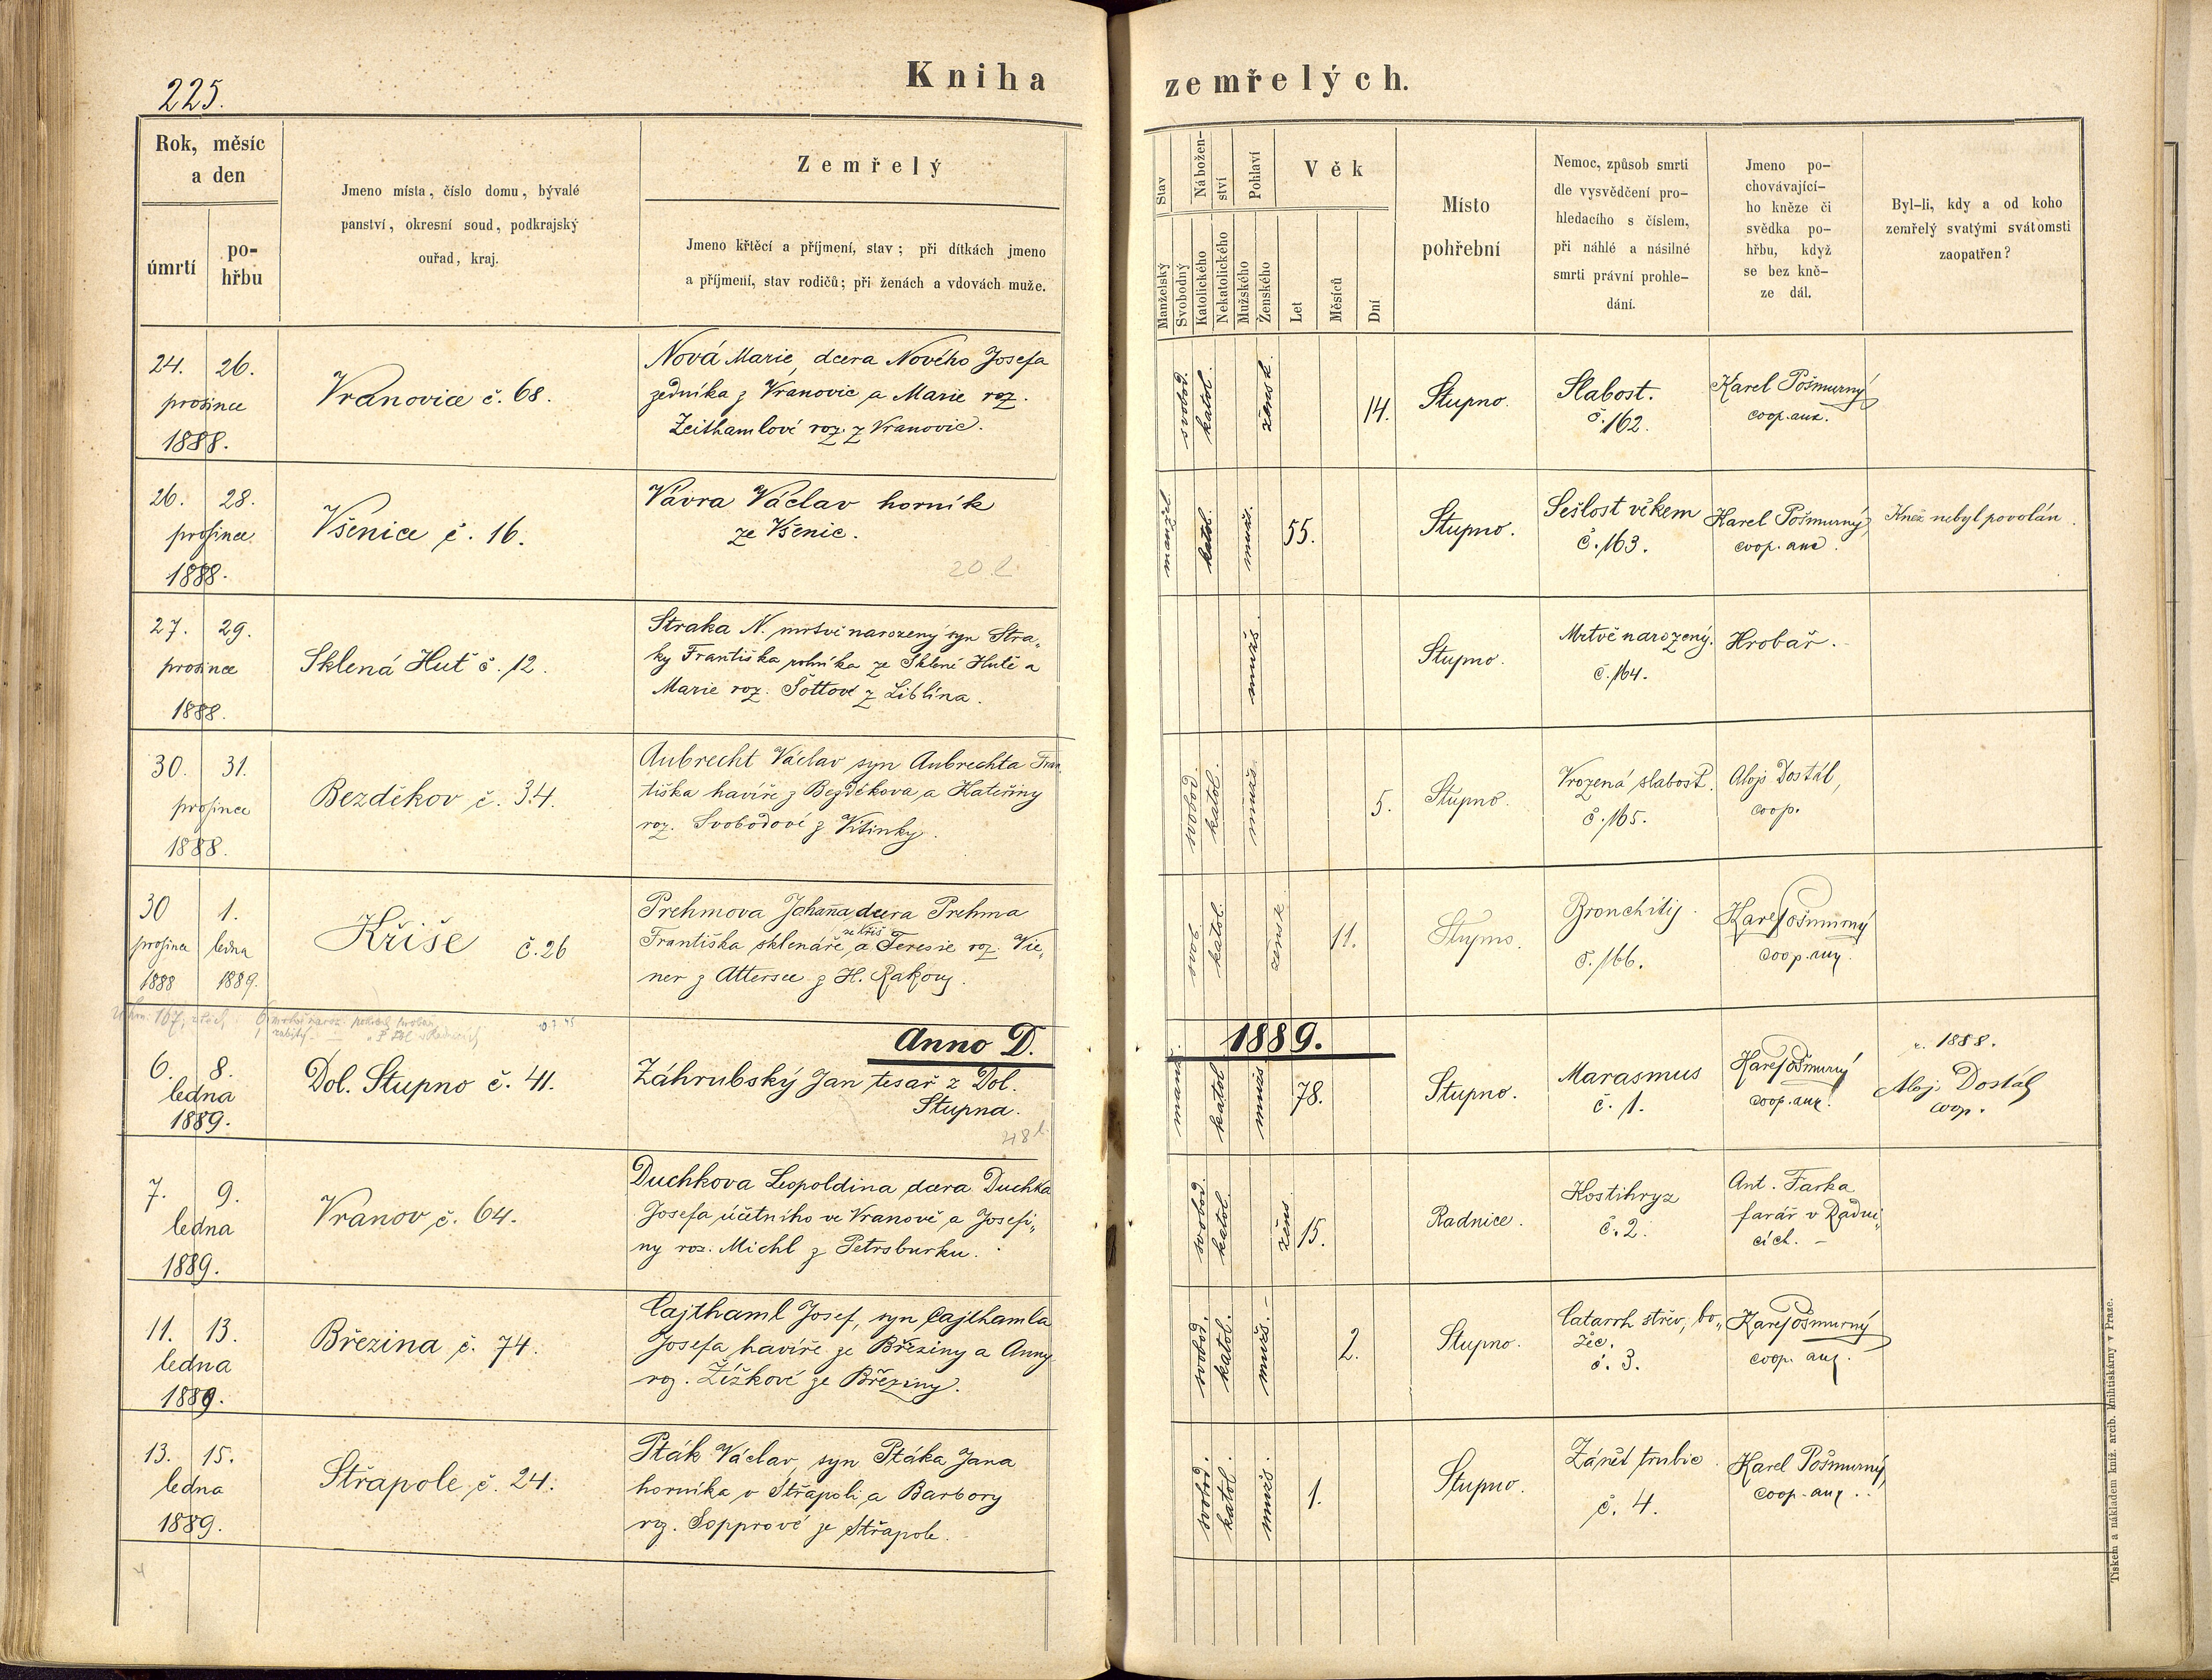 225.
Kniha zemřelých.
Rok, měsíc
a den
úmrtí
po-
hřbu
Jmeno místa, číslo domu, bývalé
panství, okresní soud, podkrajský
ouřad, kraj.
Zemřelý
Jmeno křtěcí a příjmení, stav; při dítkách jmeno
a příjmení, stav rodičů; při ženách a vdovách muže.
Stav
Manželský
Svobodný
Nábožen-
ství
Katolického
Nekatolického
Pohlaví
Mužského
Ženského
Věk
Let
Měsíců
Dní
Místo
pohřební
Nemoc, způsob smrti
dle vysvědčení pro-
hledacího s číslem,
při náhlé a násilné
smrti právní prohle-
dání.
Jmeno po-
chovávající-
ho kněze či
svědka po-
hřbu, když
se bez kně-
ze dál.
Byl-li, kdy a od koho
zemřelý svatými svátomsti
zaopatřen?
24. 26.
prosince
1888.
Vranovice č. 68.
Nová Marie, dcera Nového Josefa
zedníka z Vranovic a Marie roz.
Zeithamlové roz. z Vranovic.
svobod.
katol.
žensk.
14.
Stupno.
Slabost.
č. 162.
Karel Pošmurný
coop. aux.
26. 28.
prosince
1888.
Všenice č. 16.
Vávra Václav horník
ze Všenic.
20 l
manžel.
katol.
mužs.
55.
Stupno.
Sešlost věkem
č. 163.
Karel Pošmurný,
coop. aux.
Kněz nebyl povolán.
27. 29.
prosince
1888.
Sklená Huť č. 12.
Straka N. mrtvě narozený syn Stra„
ky Františka rolníka ze Sklené Hutě a
Marie roz. Šottové z Liblína.
mužs.
Stupno.
Mrtvě narozený.
č. 164.
Hrobař.
30. 31.
prosince
1888.
Bezděkov č. 34.
Aubrecht Václav syn Aubrechta Fran„
tiška havíře z Bezděkova a Kateřiny
roz. Svobodové z Vitinky.
svobod.
katol.
mužs.
5.
Stupno.
Vrozená slabost.
č. 165.
Alojs Dostál,
coop.
30 1.
prosince ledna
1888 1889.
Kříše č. 26
Prehmova Johana dcera Prehma
ze Kříš
Františka sklenáře, a Teresie roz. Vie„
ner z Attersee z H. Rakous.
svob.
katol.
žensk
11.
Stupno.
Bronchitis.
č. 166.
Karel Pošmurný
coop. aux.
Anno D. 1889.
6. 8.
ledna
1889.
Dol. Stupno č. 41.
Záhrubský Jan tesař z Dol.
Stupna.
48 l.
manž.
katol
mužs
78.
Stupno.
Marasmus
č. 1.
Karel Pošmurný
coop. aux.
r. 1888.
Alojs Dostál
coop.
7. 9.
ledna
1889.
Vranov č. 64.
Duchkova Leopoldina dcera Duchka
Josefa účetního ve Vranově a Josefi„
ny roz. Michl z Petrsburku.
svobod.
katol.
žens.
15.
Radnice.
Kostihryz
č. 2.
Ant. Farka
farář v Radni„
cích.
11. 13.
ledna
1889.
Březina č. 74.
Cajthaml Josef, syn Cajthamla
Josefa havíře ze Březiny a Anny
roz. Žížkové ze Březiny.
svobod.
katol.
mužs.
2.
Stupno.
Catarrh střev, bo„
žec.
č. 3.
Karel Pošmurný
coop. aux.
13. 15.
ledna
1889.
Střapole č. 24.
Pták Václav, syn Ptáka Jana
horníka v Střapoli a Barbory
roz. Sopprové ze Střapole.
svobod.
katol.
mužs.
1.
Stupno.
Zánět trubic
č. 4.
Karel Pošmurný,
coop. aux.
Tiskem a nákladem kníž. arcib. knihtiskárny v Praze.